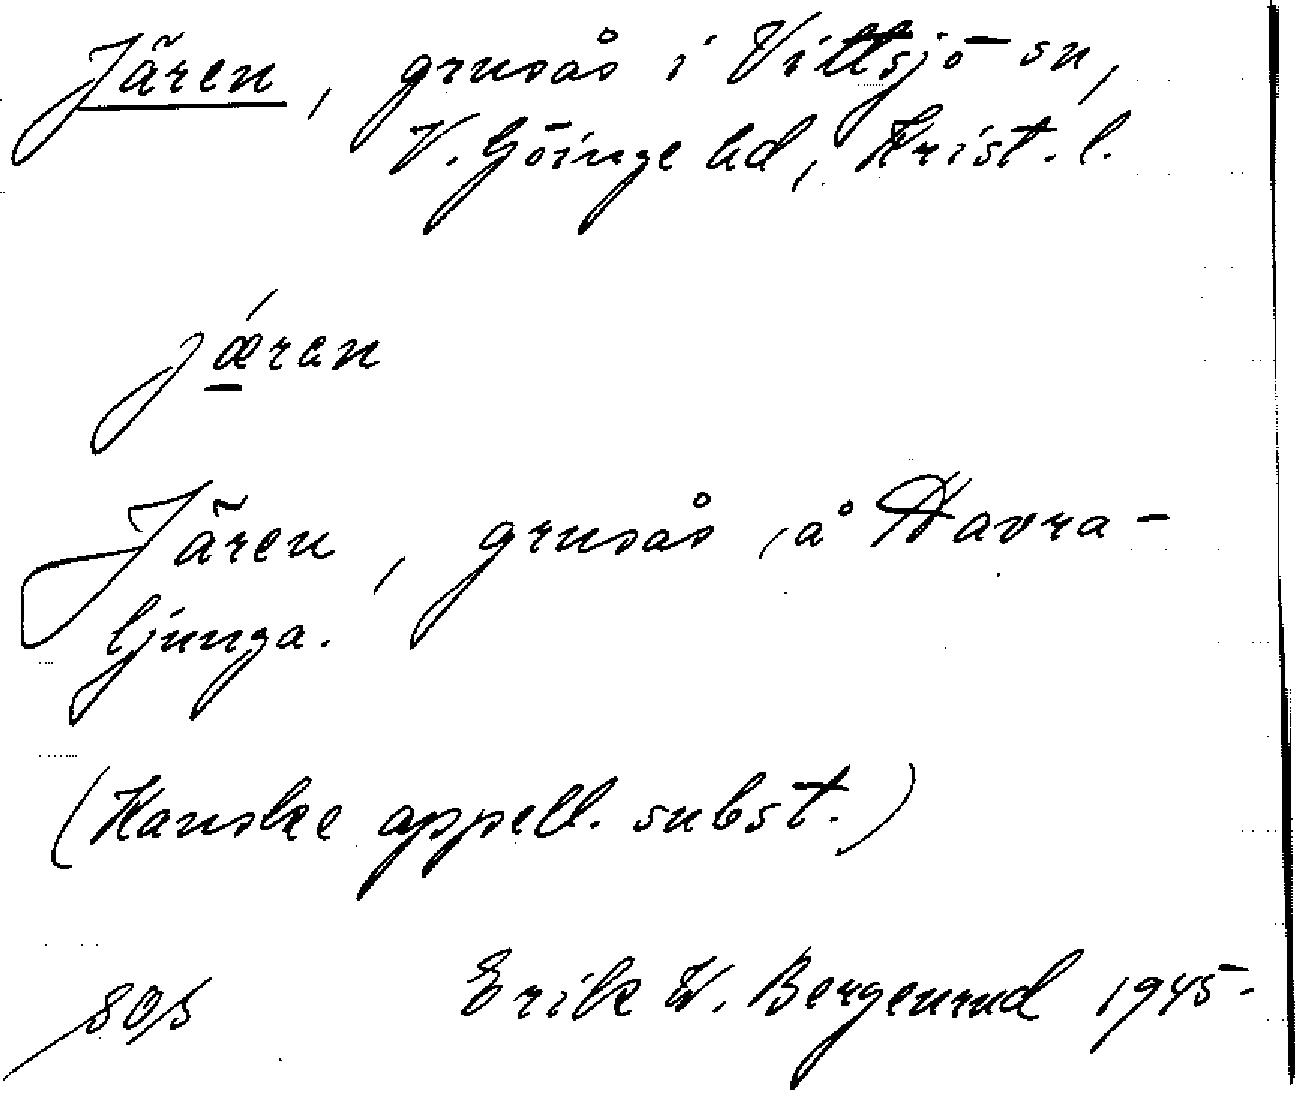 Jären, grusås i Vittsjö sn,
V. Göinge hd, Krist. l.
jǽran
Jären, grusås, å Havra-
ljunga.
(Kanske appell. subst.)
Erik W. Bergenrud 1945.